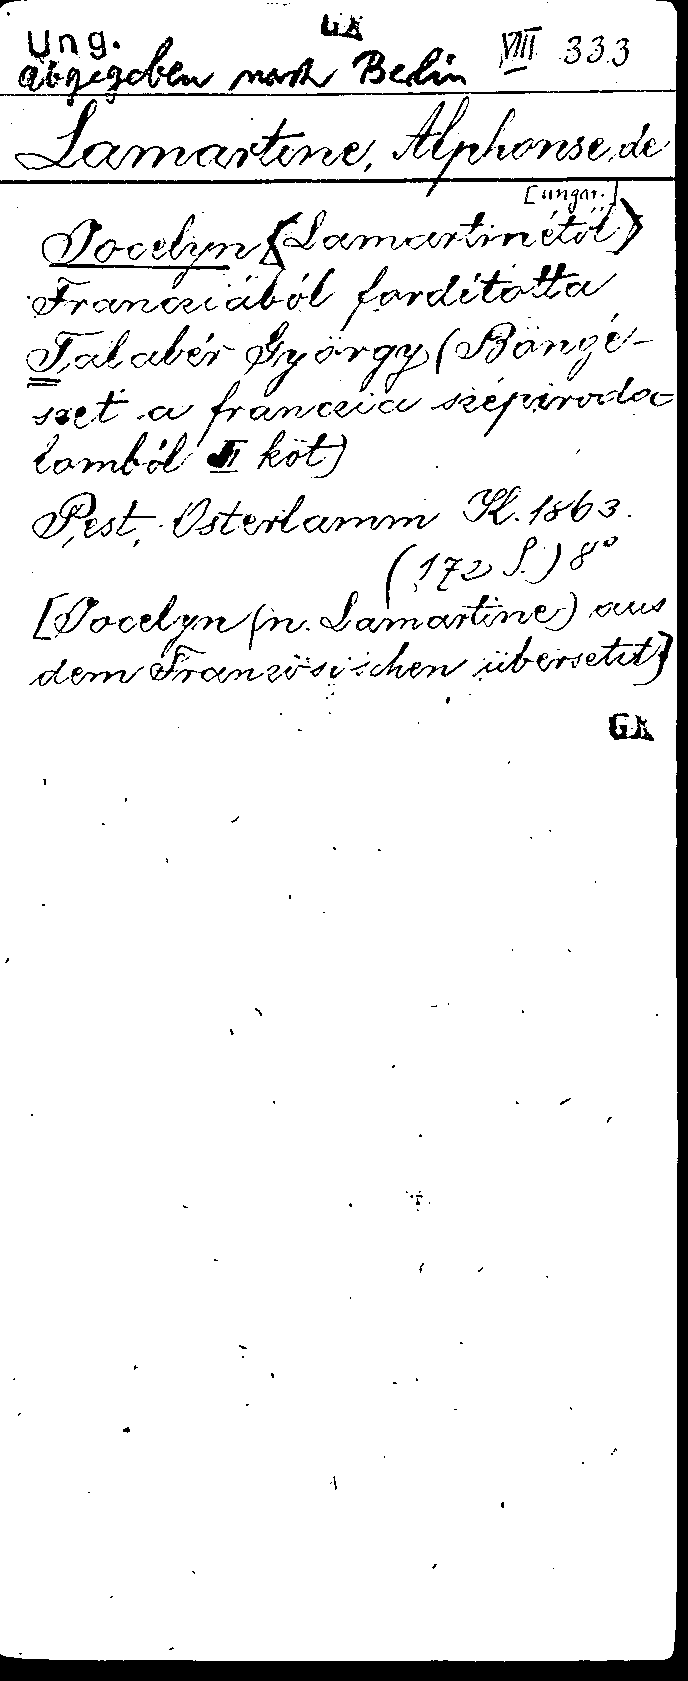 GK
Ung. VIII 333
abgegeben nach Berlin
Lamartine, Alphonse de
[ungar.]
Jocelyn (Lamartinétől)
Francziából fordította
Talabér György (Böngé-
szet a franczia szépiroda-
lomból II köt)
Pest, Osterlamm K. 1863.
(172 S.) 8°
[Jocelyn (n. Lamartine) aus
dem Französischen übersetzt]
GK